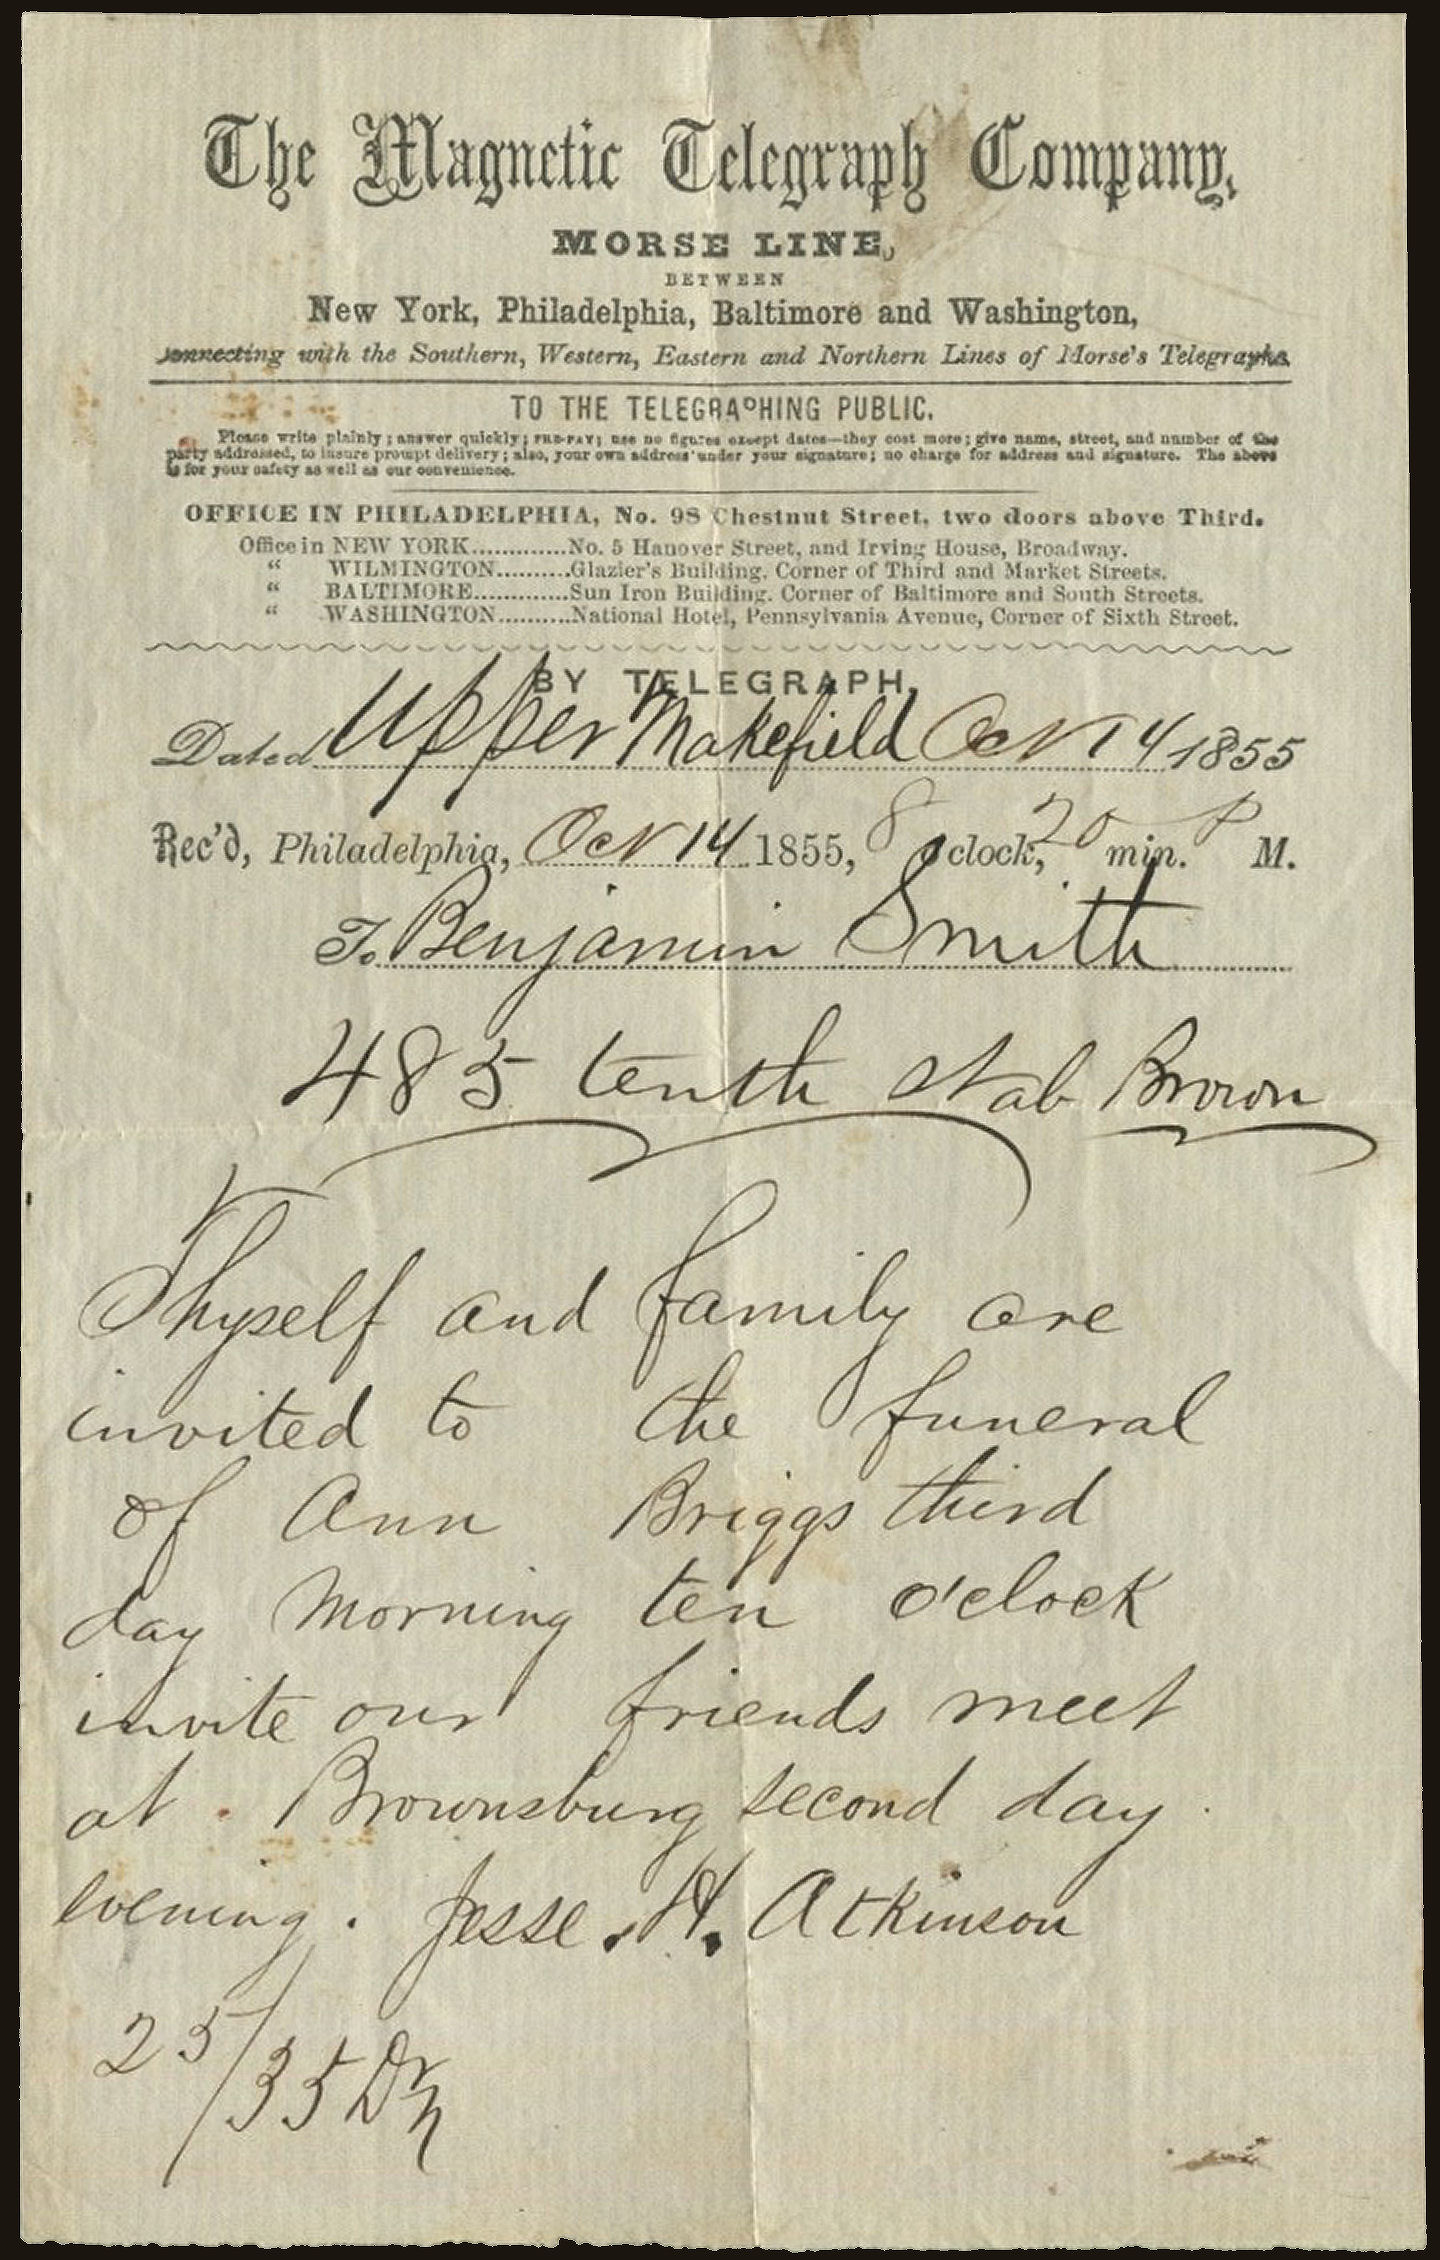 The Magnetic Telegraph Company,
MORSE LINE,
BETWEEN
New York, Philadelphia, Baltimore and Washington,
connecting with the Southern, Western, Eastern and Northern Lines of Morse's Telegraphs.
TO THE TELEGRAPHING PUBLIC.
Please write plainly; answer quickly; PRE-PAY; use no figures except dates—they cost more; give name, street, and number of the
party addressed, to insure prompt delivery; also, your own address under your signature; no charge for address and signature. The above
is for your safety as well as our convenience.
OFFICE IN PHILADELPHIA, No. 98 Chestnut Street, two doors above Third.
Office in NEW YORK.............No. 5 Hanover Street, and Irving House, Broadway.
“ WILMINGTON..........Glazier's Building, Corner of Third and Market Streets.
“ BALTIMORE.............Sun Iron Building, Corner of Baltimore and South Streets.
“ WASHINGTON..........National Hotel, Pennsylvania Avenue, Corner of Sixth Street.
BY TELEGRAPH.
Dated Upper Makefield Oct 14 1855
Rec'd, Philadelphia, Oct 14 1855, 8 o'clock, 20 min. P M.
To Benjamin Smith
485 tenth st ab Brown
Thyself and family are
invited to the funeral
of Ann Briggs third
day morning ten o'clock
invite our friends meet
at Brownsburg second day
evening. Jesse. H. Atkinson
25/35